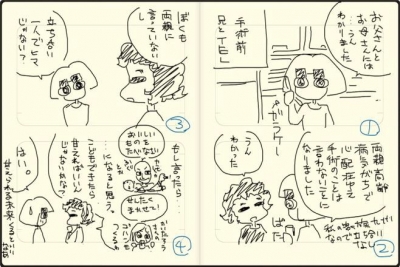 お父さんと
お母さんには
…うん
わかりました
手術前
兄とTEL
ガラケー
①
両親高齢
病気がちで
心配症ゆえ
手術のことは
言わないことに
なりました
うん
わかった
ぱた
②
ぼくも
両親に
言っていない
し。
立ち会い
一人でヒマ
じゃない?
③
もし言ったら…
せんたく
まかせて!
…になると思う。
こどもできたら
甘えればいいん
じゃないかな?
はい。
甘えられる未来くるといい
なぁ
④